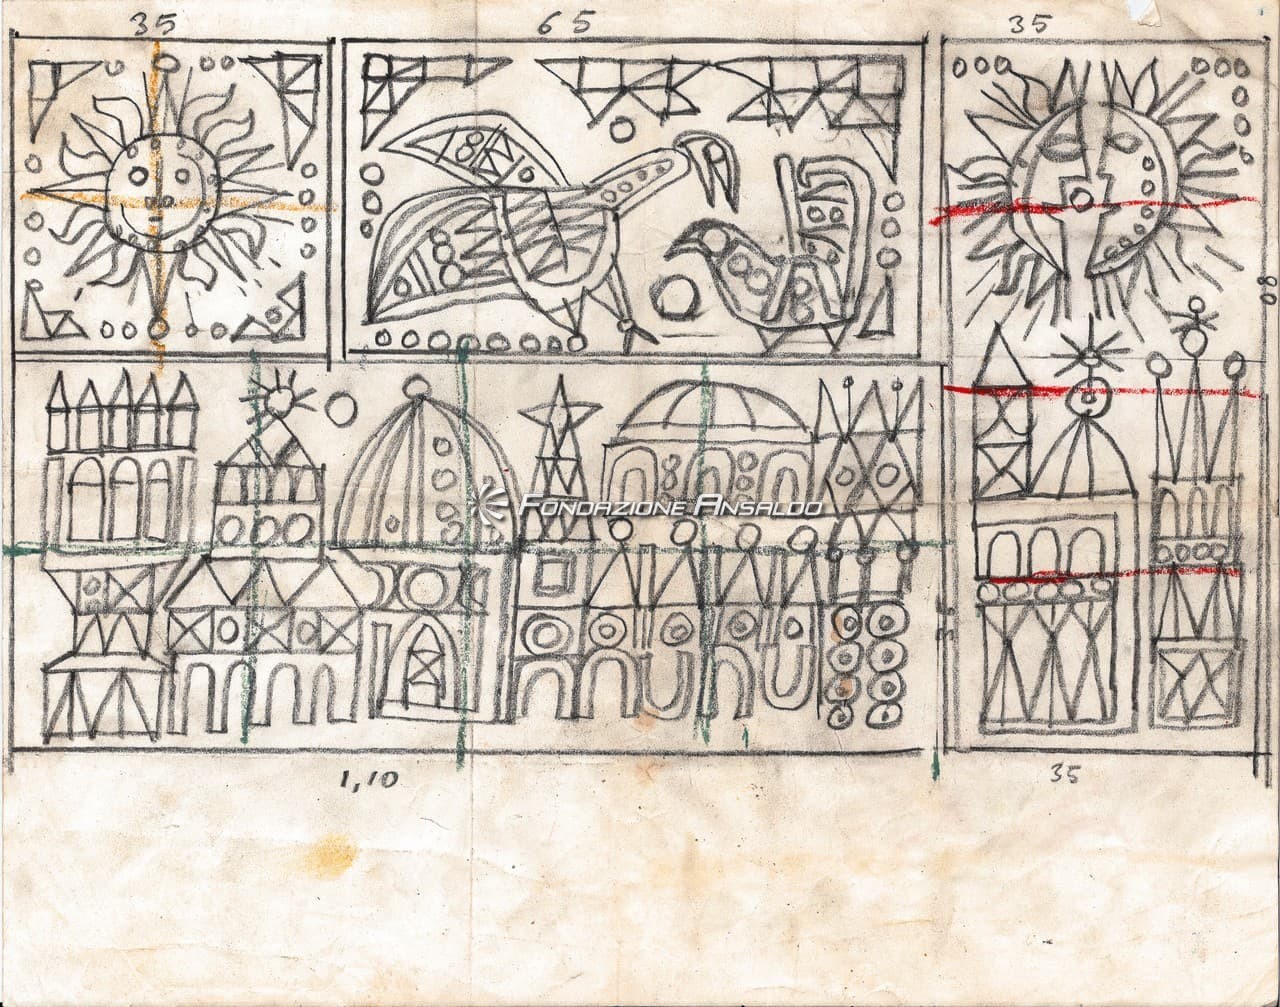 35
65
35
80
FONDAZIONE ANSALDO
1,10
35